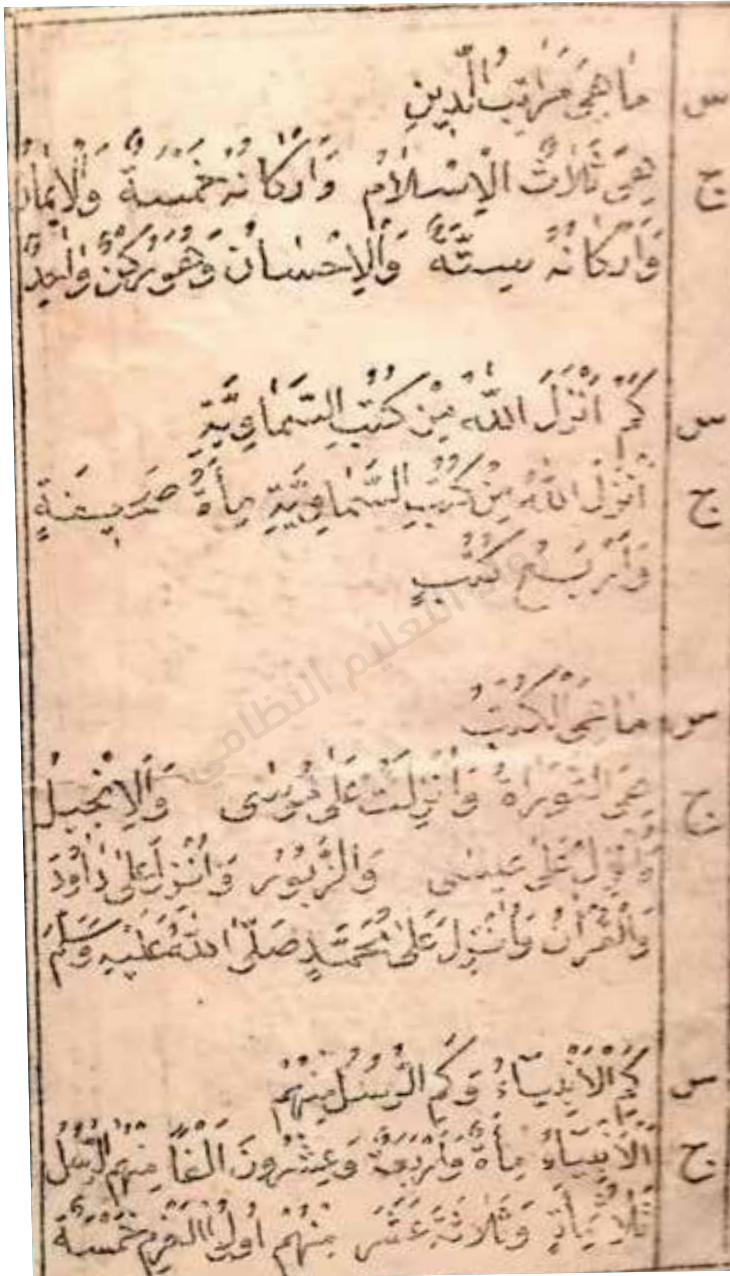 س مَا هِيَ مَرَاتِبُ الدِّينِ
ج هِيَ ثَلَاثٌ الْإِسْلَامُ وَأَرْكَانُهُ خَمْسَةٌ وَالْإِيمَانُ
وَأَرْكَانُهُ سِتَّةٌ وَالْإِحْسَانُ وَهُوَ رُكْنٌ وَاحِدٌ
س كَمْ أَنْزَلَ اللهُ مِنْ كُتُبِ السَّمَاوِيَّةِ
ج أَنْزَلَ اللهُ مِنْ كُتُبِ السَّمَاوِيَّةِ مِأَةُ صَحِيفَةٍ
وَأَرْبَعُ كُتُبٍ
س مَا هِيَ الْكُتُبُ
ج هِيَ التَّوْرَاةُ وَأُنْزِلَتْ عَلَى مُوسَى وَالْإِنْجِيلُ
وَأُنْزِلَ عَلَى عِيسَى وَالزَّبُورُ وَأُنْزِلَ عَلَى دَاوُدَ
وَالْقُرْآنُ وَأُنْزِلَ عَلَى مُحَمَّدٍ صَلَّى اللهُ عَلَيْهِ وَسَلَّمَ
س كَمِ الْأَنْبِيَاءُ وَكَمِ الرُّسُلُ مِنْهُمْ
ج الْأَنْبِيَاءُ مِأَةٌ وَأَرْبَعَةٌ وَعِشْرُونَ أَلْفًا مِنْهُمُ الرُّسُلُ
ثَلَاثُمِأَةٍ وَثَلَاثَةَ عَشَرَ مِنْهُمْ أُولُوا الْعَزْمِ خَمْسَةٌ
التعليم النظامي